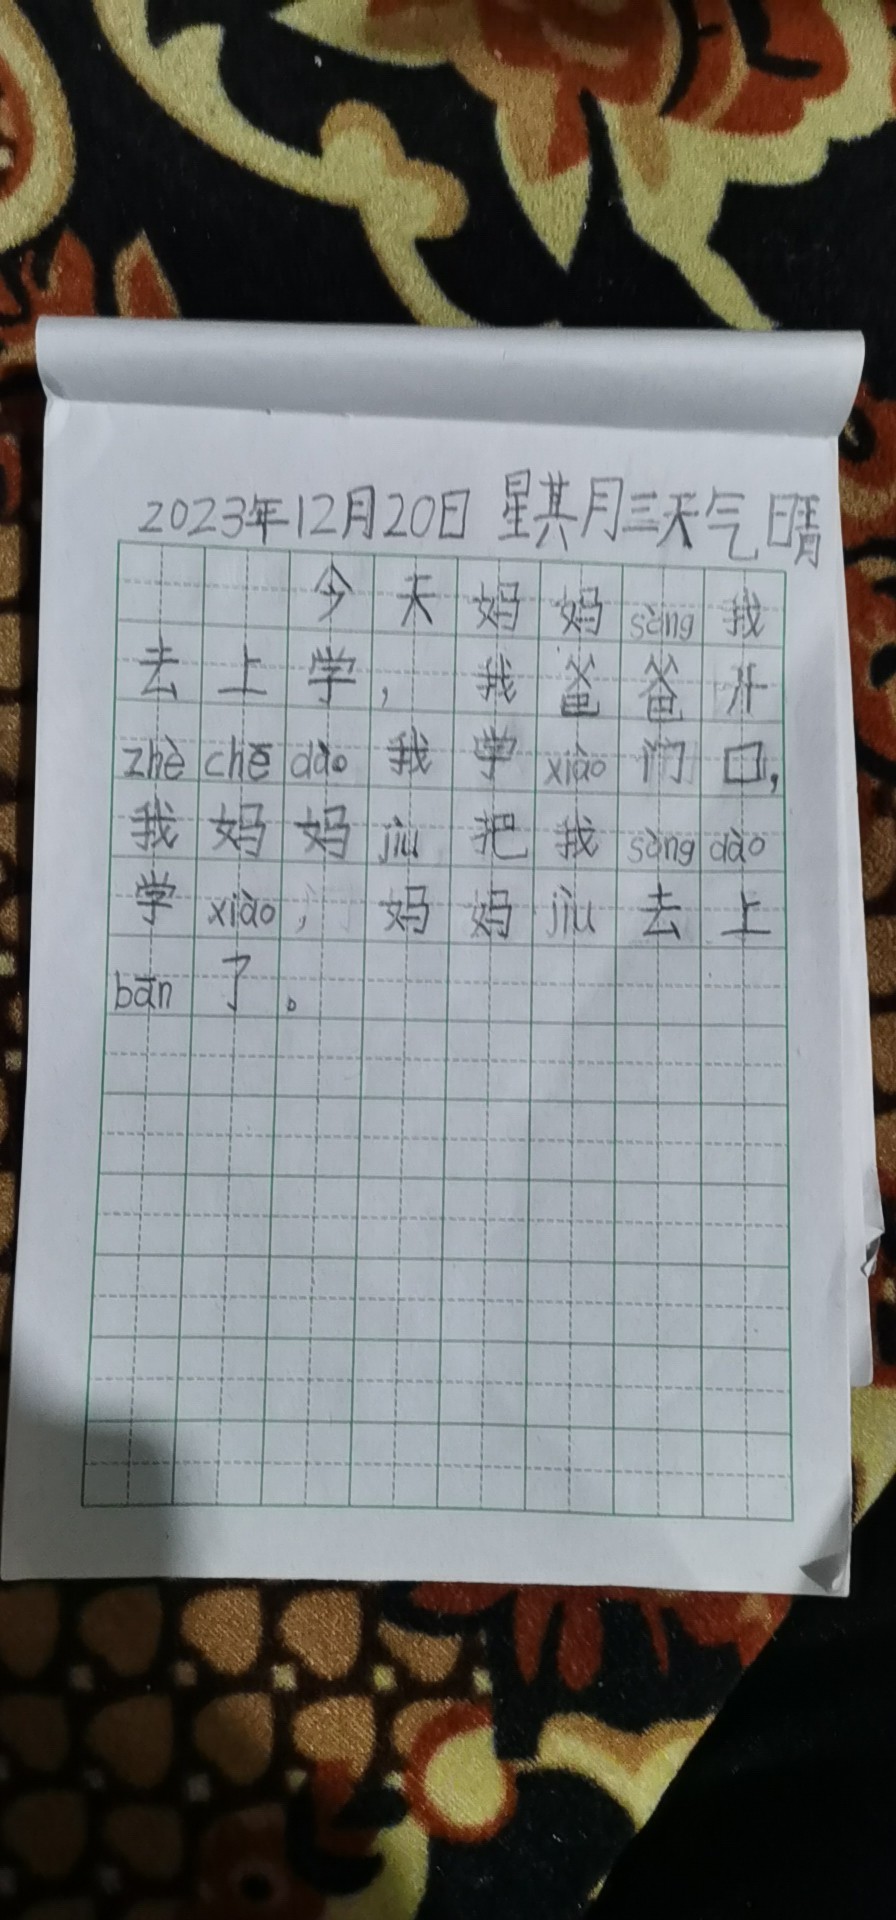 2023年12月20日 星其月三天气晴
今天妈妈sòng我
去上学，我爸爸开
zhè chē dào我学xiào门口，
我妈妈jiù把我sòng dào
学xiào，妈妈jiù去上
bān了。